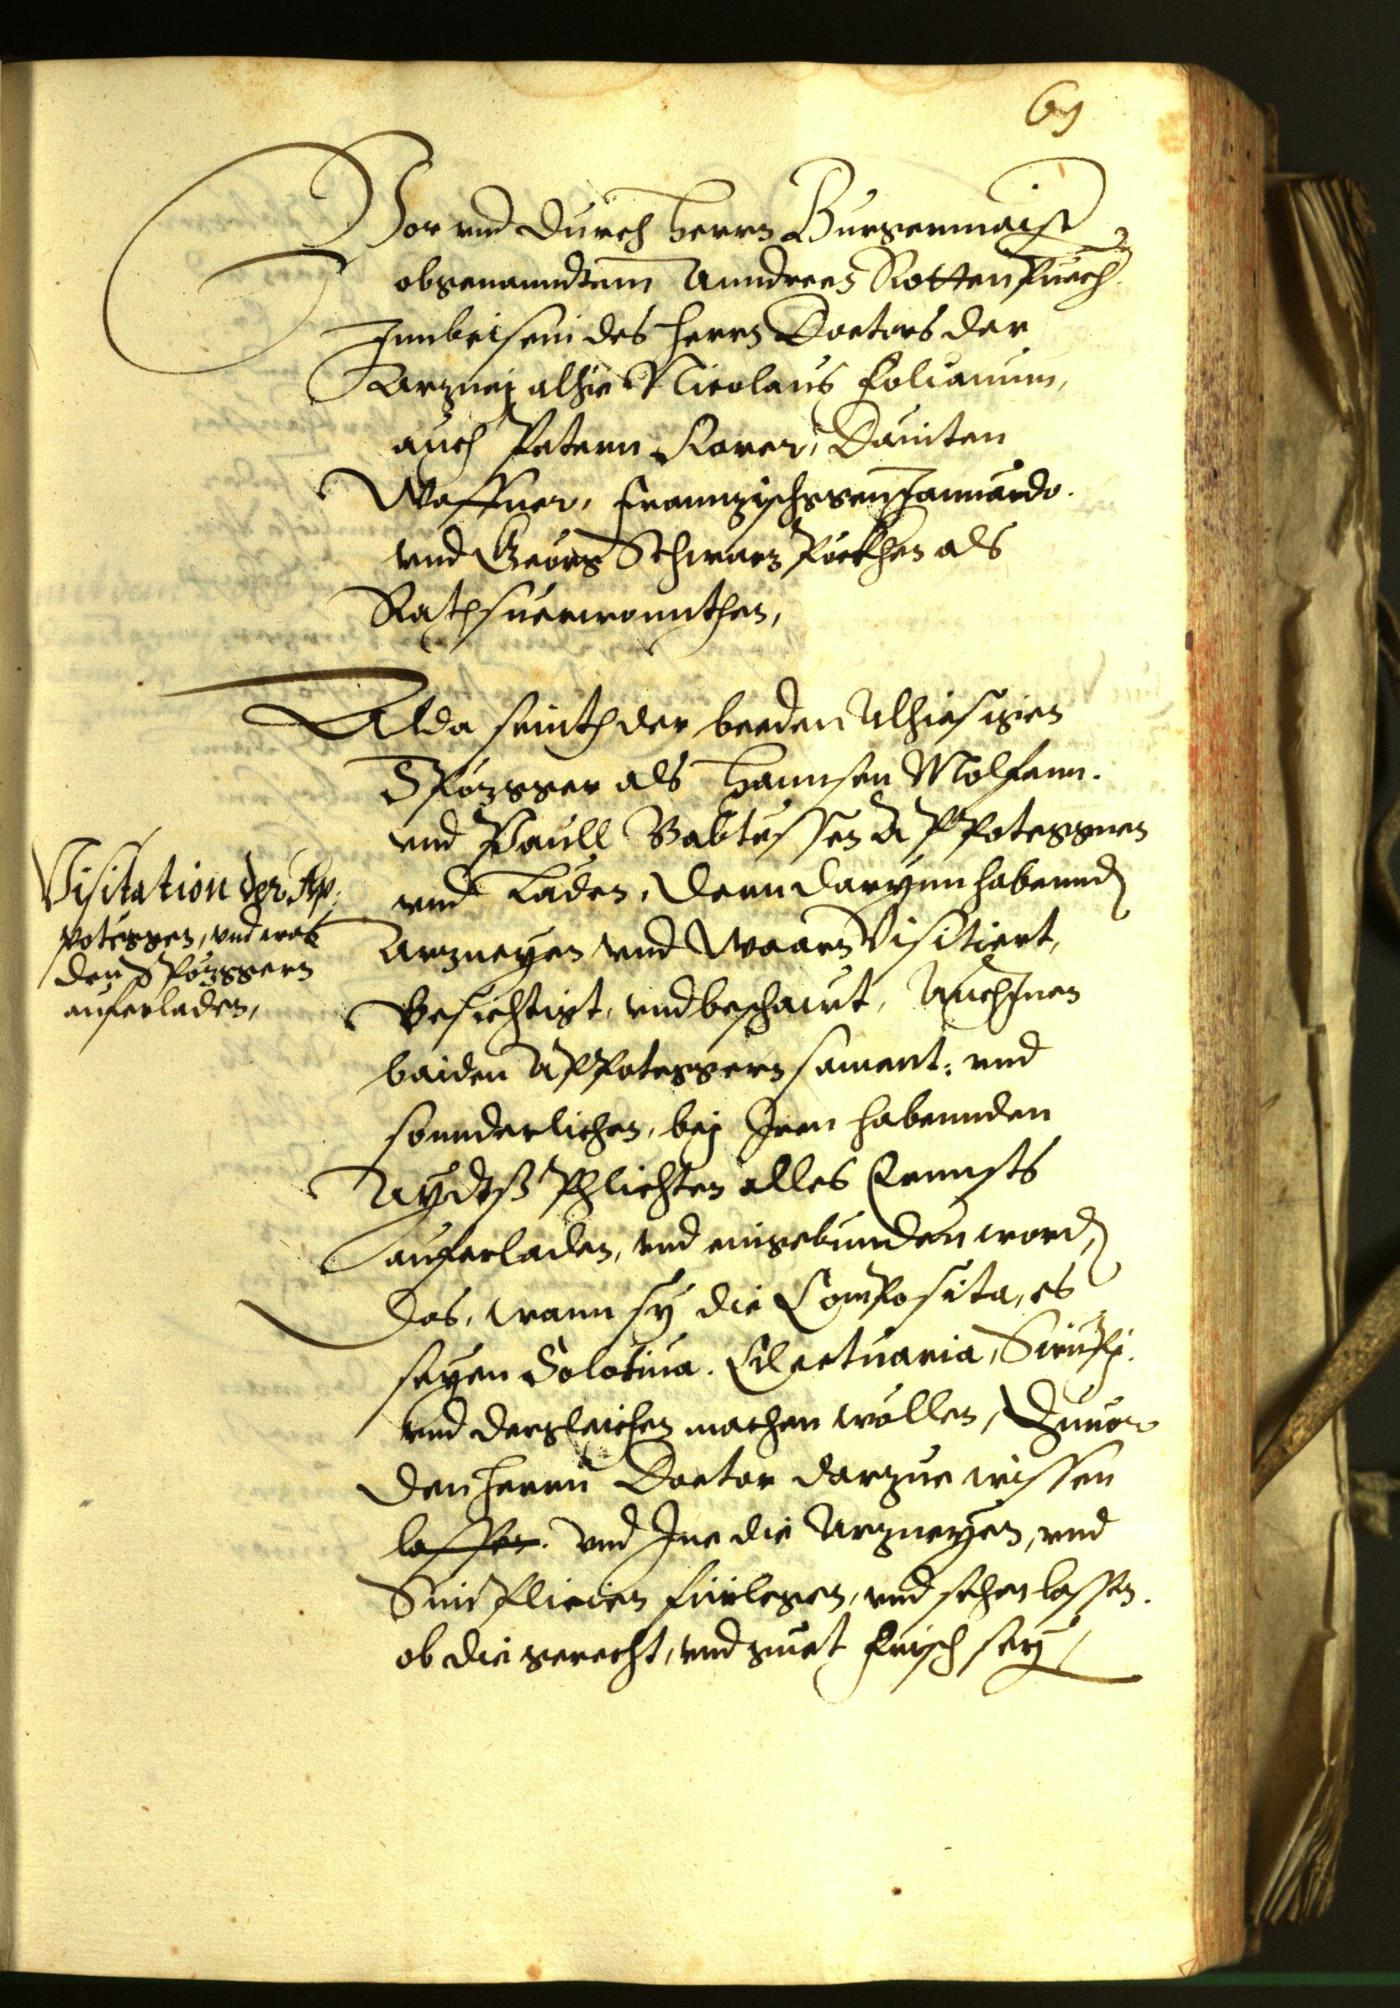 69
Vor vnd durch Herrn Burgermaister
obgenanndtem Anndreen Rottenpuech
Innbeisein des Herrn Doctors der
Arzney alhie Nicolaus
auch Petern Korer, Damiten
Waffner, Frannzischggen Januardo.
vnd Georg Schwarz Pöckhen als
Rathsuerwonnthen,
Alda seinth der beeden Alhiesigen
Spözgger als Hannsen Molfenn.
vnd Paull Appoteggnen
vnd Laden, deren darynnhabennd
Arzneyen vnd Waarn Visitiert,
Besichtigt, vnd beschaut, Auch Inen
baiden Appoteggern sament: vnd
sonnderlichen, bey Iren habennden
Aydts Phlichten alles Ernnsts
auferladen, vnd eingebunden word,
Das, wann sy die Composita, es
seyen Solotiua. Electuaria, Sirupi.
vnd dergleichen machen wöllen, Zuuor
den Herrn Doctor darzue wissen
lassen. vnd Ine die Arzneyen, vnd
Simplicien fürlegen, vnd sehen lassen.
ob die gerecht, vnd guet frisch sey
Visitation der Ap:
poteggen, vnd was
den Spözggern
auferladen,